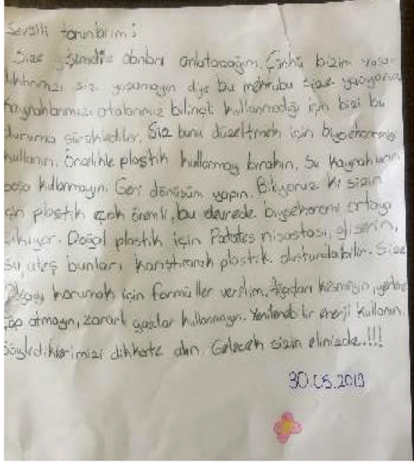 Sevgili torunlarım;
Size şimdiden olanları anlatacağım. Çünkü bizim yaşa-
dıklarımızı siz yaşamayın diye bu mektubu size yazıyorum.
Kaynaklarımızı atalarımız bilinçli kullanmadığı için bizi bu
duruma sürüklediler. Siz bunu düzeltmek için biyoekonomiyi
kullanın. Öncelikle plastik kullanmayı bırakın. Su kaynaklarını
boşa kullanmayın. Geri dönüşüm yapın. Biliyoruz ki sizin
için plastik çok önemli, bu devrede biyoekonomi ortaya
çıkıyor. Doğal plastik için Patates nişastası, gliserin,
su, ateş bunları karıştırarak plastik oluşturulabilir. Size
Doğayı korumak için formüller verelim. Ağaçları kesmeyin, yerlere
çöp atmayın, zararlı gazlar kullanmayın. Yenilenebilir enerji kullanın.
Söylediklerimizi dikkate alın. Gelecek sizin elinizde.!!!
30.05.2019